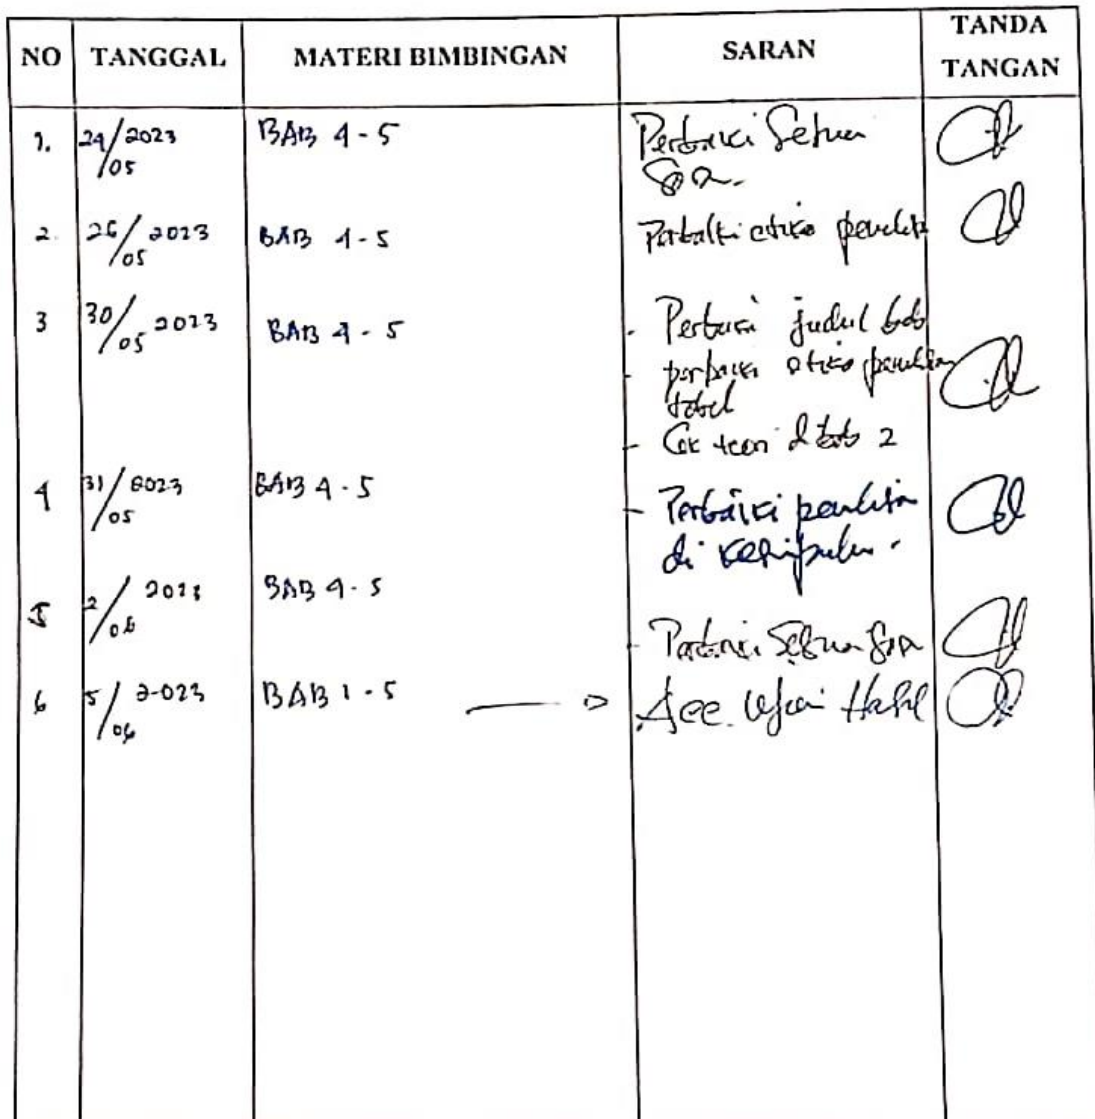 NO TANGGAL MATERI BIMBINGAN SARAN TANDA TANGAN
1. 24/05 2023 BAB 4-5 Perbaiki Sesuai
Saran.
2. 26/05 2023 BAB 4-5 Perbaiki etika peneliti
3 30/05 2023 BAB 4-5 - Perbaiki judul bab
- perbaiki etika penelitian
tabel
- Cek teori di bab 2
4 31/05 2023 BAB 4-5 - Perbaiki penelitian
di kesimpulan.
5 2/06 2023 BAB 4-5
- Perbaiki Sesuai Saran
6 5/06 2023 BAB 1-5 Acc Ujian Hasil